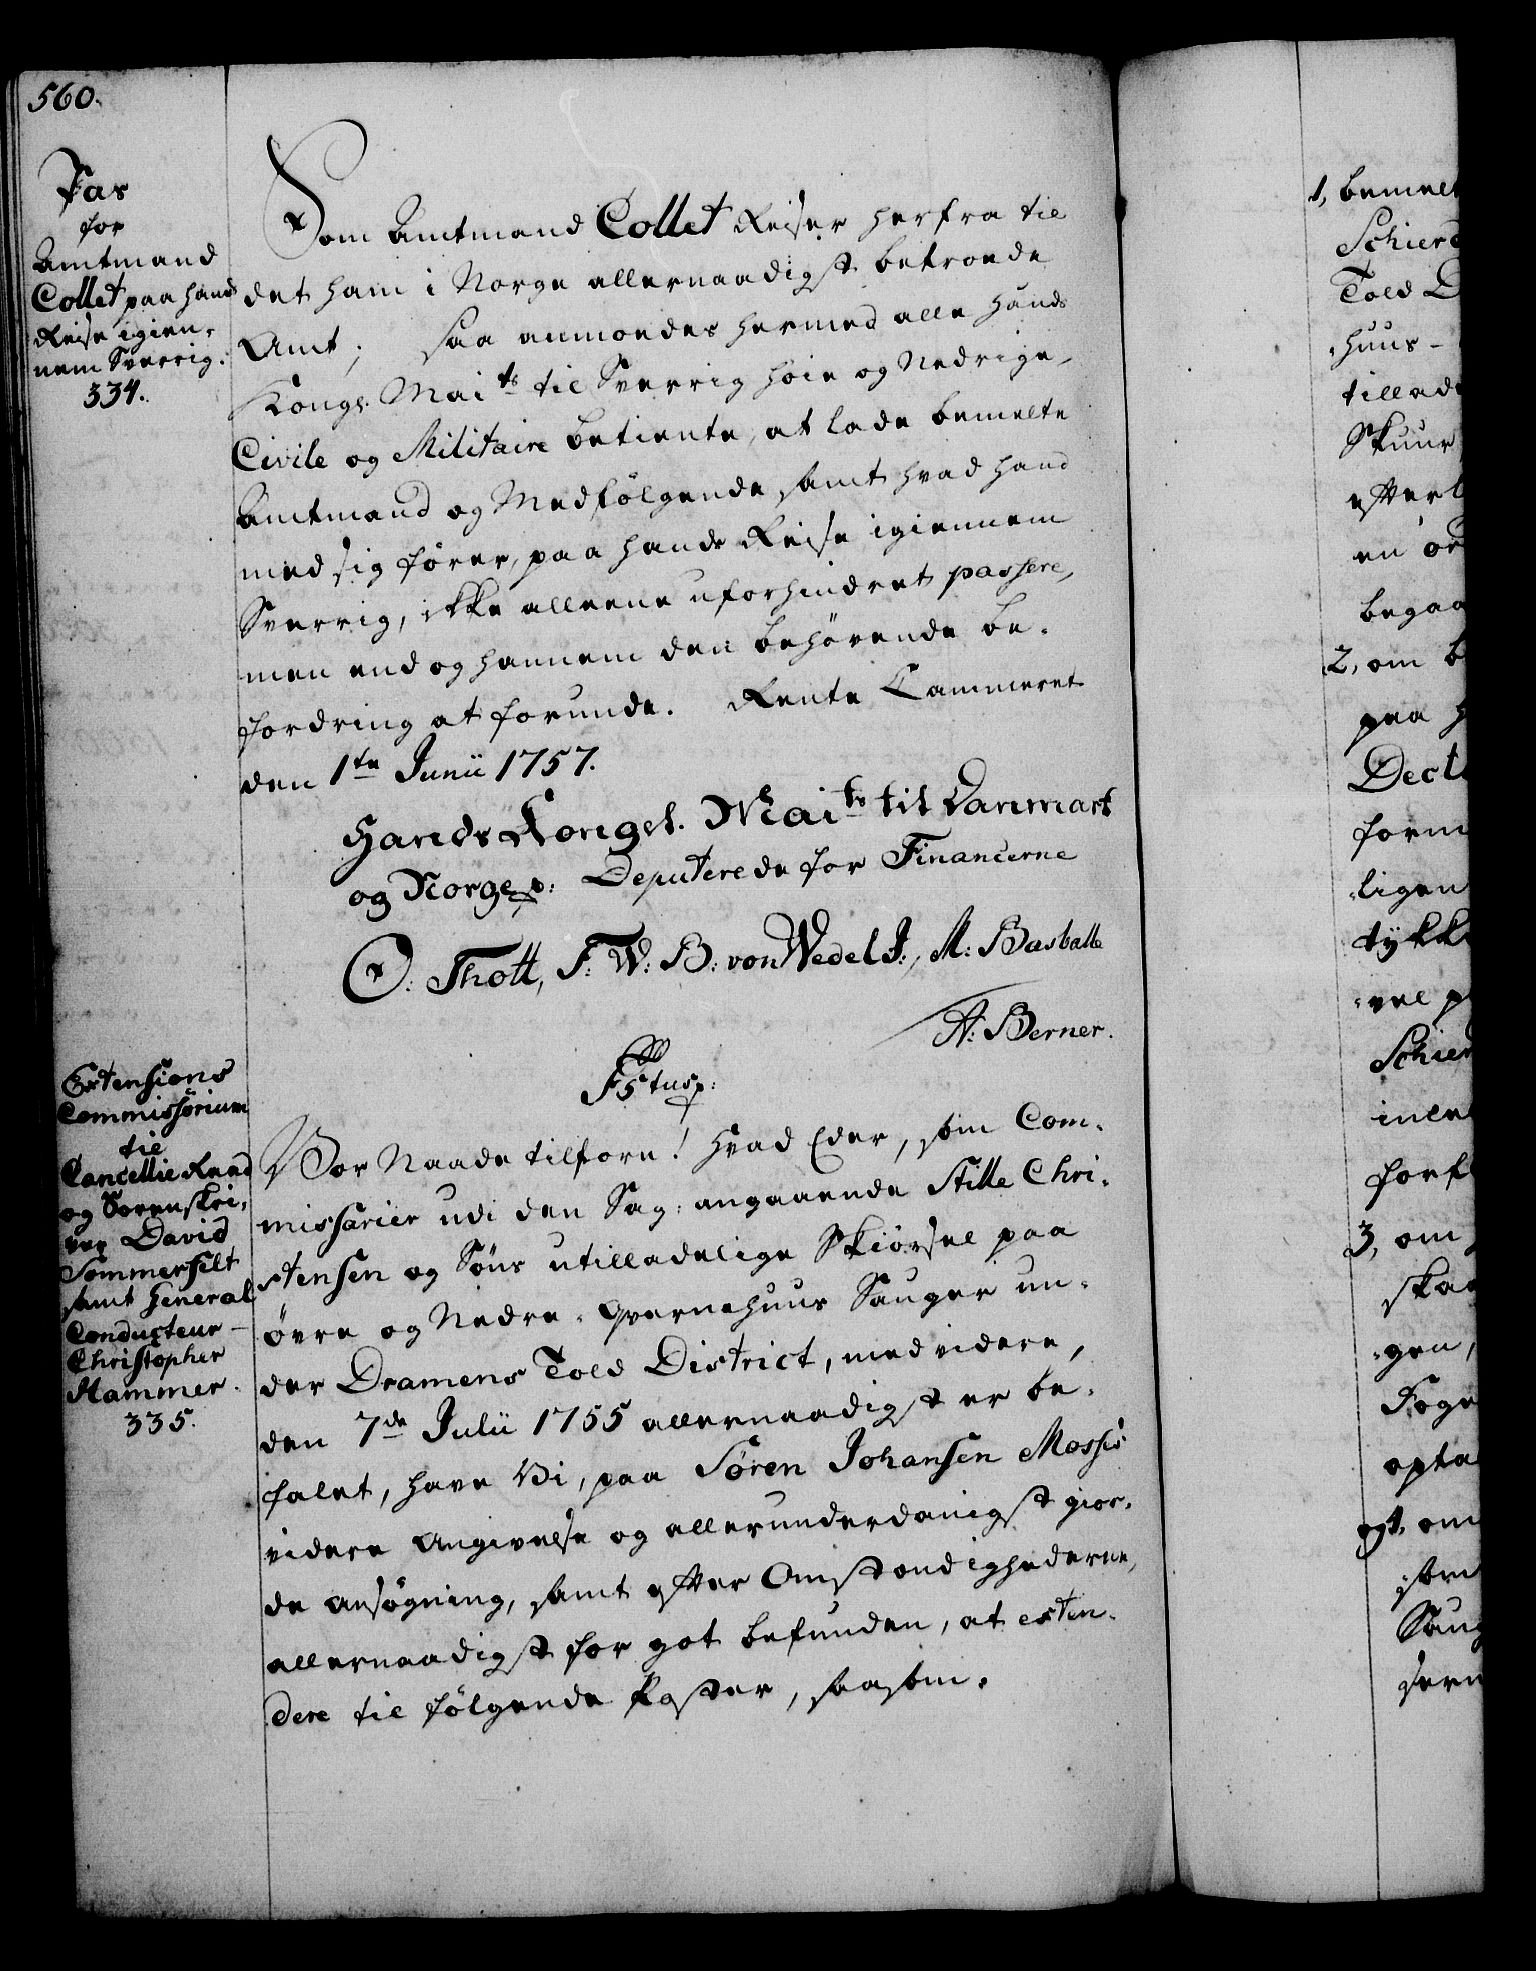 560.
Pas
for
Amtmand
Collet paa hans
Reise igien-
nem Sverrig.
334.
Som Amtmand Collet Reiser herfra til
det ham i Norge allernaadigst betroede
Amt; saa anmodes hermed alle Hands
Kongl. Mai ts til Sverrig høie og Nedrige,
Civile og Militaire betiente, at lade bemelte
Amtmand og Medfølgende, samt hvad hand
med sig fører, paa hands Reise igiennem
Sverrig, ikke alleene uforhindret passere,
men end og hannem den behøvende be-
fordring at forunde. Rente Cammeret
den 1te Junii 1757.
Hands Kongel. Mai ts til Danmark
og Norge p: Deputerede for Financerne
O: Thott, F: W: B: von Wedel J:, M: Basballe
A: Berner.
F5tus p:
Extensions
Commissorium
til
Cancellie Raad
og Sorenskri-
ver David
Sommerfelt
samt General
Conducteur
Christopher
Hammer.
335.
Vor Naade tilforn! Hvad Eder, som Com-
missarier udi den Sag: angaaende Stille Chri-
stensen og Søns utilladelige Skiørsel paa
øvre og Nedre-Qvernehuus Sauger un-
der Dramens Told District, med videre,
den 7de Julii 1755 allernaadigst er be-
falet, have Vi, paa Søren Johansen Mossis
videre Angivelse og allerunderdanigst gior-
de ansøgning, samt efter Omstændighederne,
allernaadigst for got befunden, at exten-
dere til følgende Poster, saasom.
1, bemelt
Schier
Told D
huus-
tillad
Skuur
efterl
en or
begaa
2, om b
paa H
Dect
form
ligen
tykk
vel p
Schier
inle
forf
3, om
skaa
gen,
Foge
opta
om
som
Saug